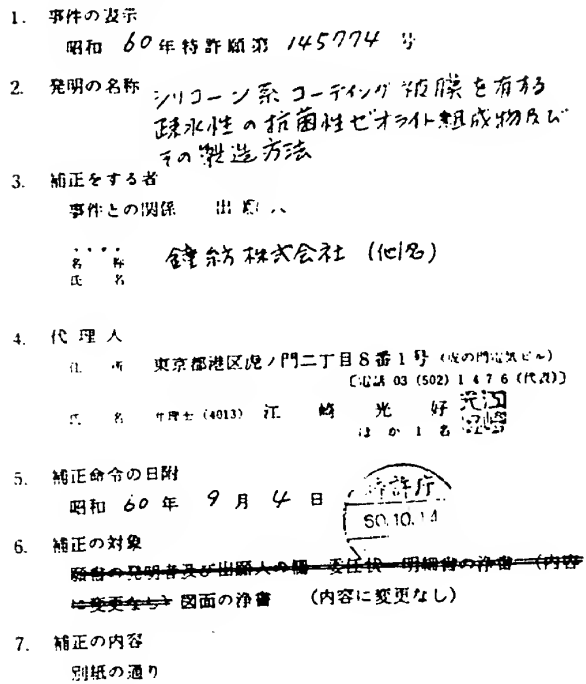 1. 事件の表示
昭和 60年特許願第 145774 号
2. 発明の名称 シリコーン系コーティング被膜を有する
疎水性の抗菌性ゼオライト組成物及び
その製造方法
3. 補正をする者
事件との関係 出願人
名 称
氏 名
鐘紡株式会社 (他1名)
4. 代理人
住 所 東京都港区虎ノ門二丁目8番1号 (虎の門電気ビル)
〔電話 03 (502) 1476 (代表)〕
氏 名 弁理士 (4013) 江 崎 光 好
ほか1名
5. 補正命令の日附
昭和 60年 9月 4日
特許庁
60.10.14
6. 補正の対象
願書の発明者及び出願人の欄 委任状 明細書の浄書 (内容
に変更なし) 図面の浄書 (内容に変更なし)
7. 補正の内容
別紙の通り